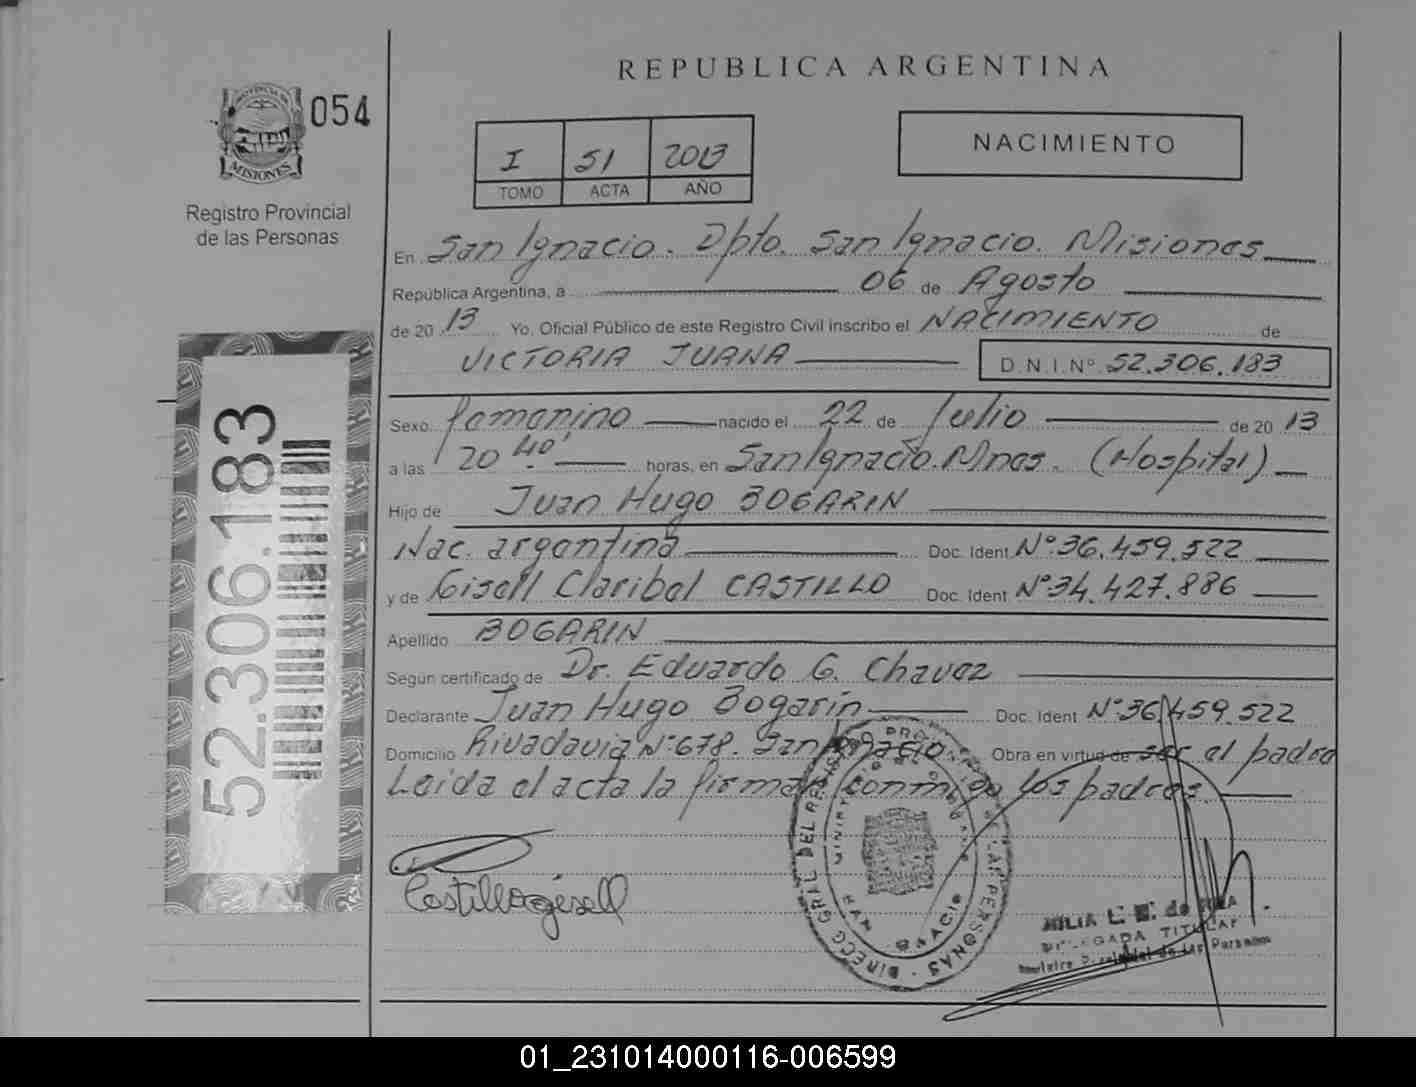 REPUBLICA ARGENTINA
054
PROVINCIA DE
MISIONES
Registro Provincial
de las Personas
I 51 2013
TOMO ACTA AÑO
NACIMIENTO
En San Ignacio. Dpto. San Ignacio. Misiones
República Argentina, a 06 de Agosto
de 20 13 Yo. Oficial Público de este Registro Civil inscribo el NACIMIENTO de
VICTORIA JUANA D.N.I.Nº 52.306.183
Sexo femenino nacido el 22 de Julio de 20 13
a las 20 40' horas, en San Ignacio. Mnes. (Hospital)
Hijo de Juan Hugo BOGARIN
Nac. argentina Doc. Ident Nº 36.459.522
y de Gisell Claribel CASTILLO Doc. Ident Nº 34.427.886
Apellido BOGARIN
Según certificado de Dr. Eduardo G. Chavez
Declarante Juan Hugo Bogarín Doc. Ident Nº 36.459.522
Domicilio Rivadavia Nº 678. San Ignacio. Obra en virtud de ser el padre
Leida el acta la firman conmigo los padres.
52.306.183
Castillo gisell
DIRECC GRAL DEL REGISTRO PRO DE LAS PERSONAS
MINISTERIO DE GOBIERNO
SAN IGNACIO
DELEGADA TITULAR
de las Personas
01_231014000116-006599